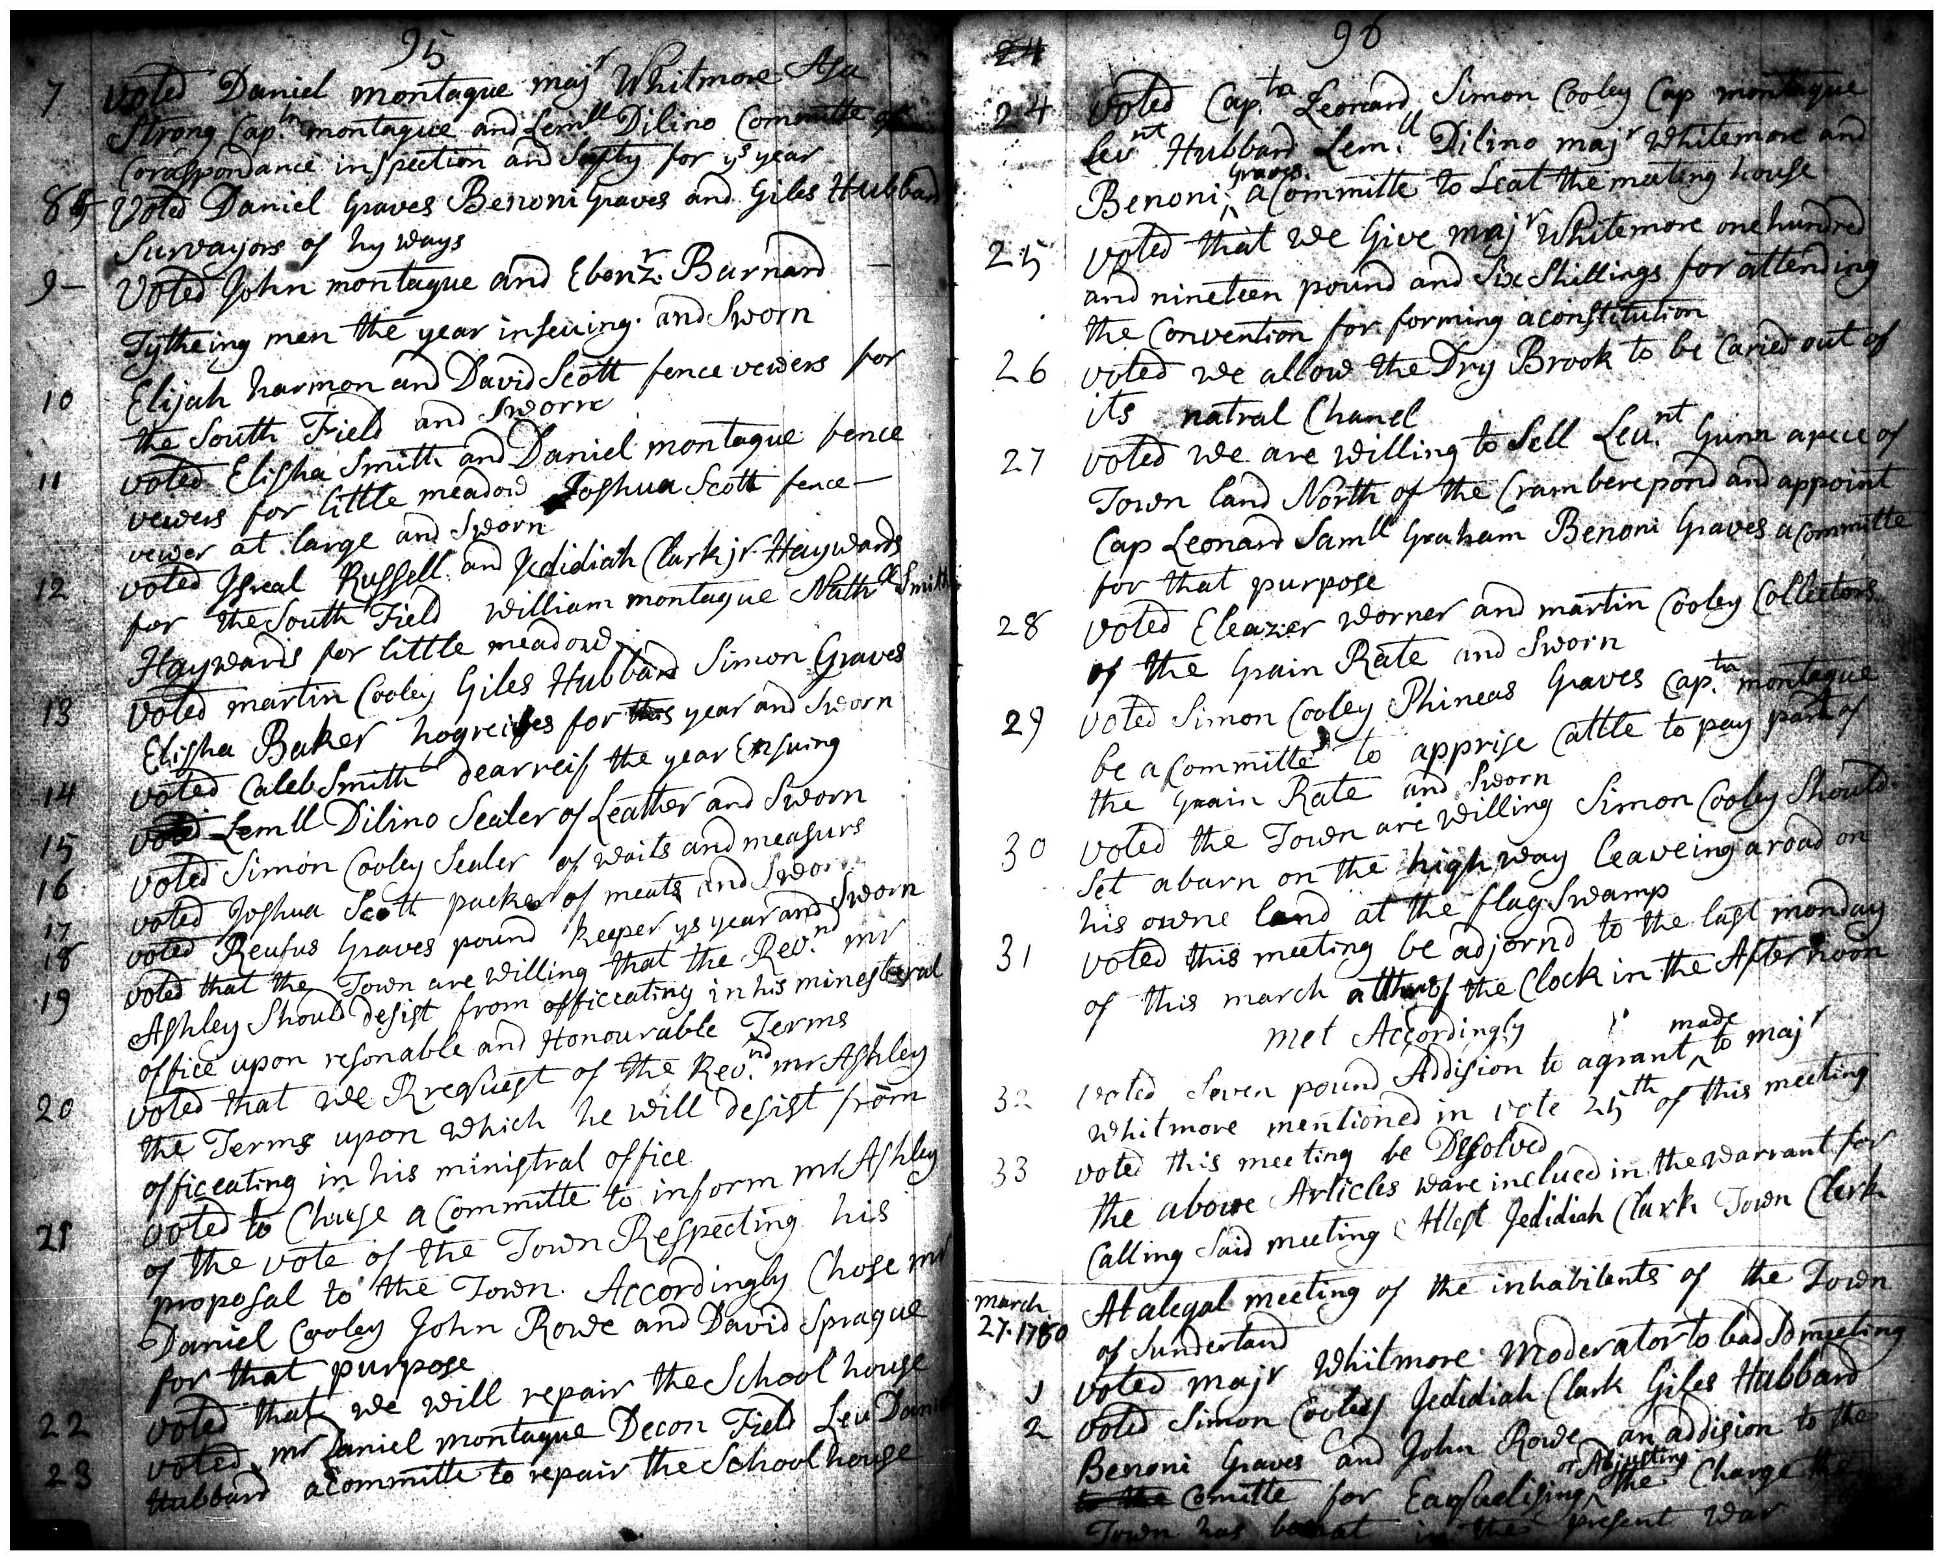 95
7 Voted Daniel montague majr Whitmore Asa
Strong Cap.tn montague and Lemll Dilino Committe of
Coraspondance inspection and Safty for ys year
8 Voted Daniel Graves Benoni Graves and Giles Hubbard
Survayors of hy ways
9 - Voted John montague and Ebenzr. Barnard -
Tytheing men the year insuing. and Sworn
10 Elijah harmon and David Scott fence veiders for
the South Field and Sworn
11 voted Elisha Smith and Daniel montague fence
veiwers for little meadow Joshua Scott fence -
veiwer at large and Sworn
12 voted Isreal Russell and Jedidiah Clark jr. Haywards
for the South Field William montague Nathll Smith
Haywards for little meadow
13 voted martin Cooley Giles Hubbard Simon Graves
Elisha Baker hogreifes for this year and Sworn
14 voted Caleb Smith dearreif the year Ensuing
15 voted Lemll Dilino Sealer of Leather and Sworn
16 voted Simon Cooley Sealer of waits and measurs
17 voted Joshua Scott packer of meats and Sworn
18 voted Reufus Graves pound keeper ys year and Sworn
19 voted that the Town are willing that the Rev.nd mr
Ashley Should desist from officeating in his minesteral
office upon resonable and Honourable Terms
20 voted that we Rrequest of the Rev.nd mr Ashley
the Terms upon which he will desist from
officeating in his ministral office
21 voted to Chuse a Committe to inform mr Ashley
of the vote of the Town Respecting his
proposal to the Town. Accordingly Chose mr
Daniel Cooley John Rowe and David Sprague
for that purpose
22 voted that we will repair the School house
23 voted mr Daniel montague Decon Field Leu Daniel
Hubbard a committe to repair the School house
96
24
24 Voted Cap.tn Leonard Simon Cooley Cap montague
Levnt Hubbard Lem.ll Dilino majr Whitemore and
Benoni Graves. a Committe to Seat the meeting house
25 voted that we Give majr Whitemore one hundred
and nineteen pound and Six Shillings for attending
the Convention for forming a constitution
26 voted we allow the Dry Brook to be Caried out of
its natral Chanel
27 voted we are willing to Sell Leu.nt Gunn a pece of
Town land North of the Cramberepond and appoint
Cap Leonard Samll Graham Benoni Graves a Committe
for that purpose
28 voted Eleazer Worner and martin Cooley Collectors
of the Grain Rate and Sworn
29 voted Simon Cooley Phineas Graves Cap.tn montague
be a Committe to apprise Cattle to pay part of
the Grain Rate and Sworn
30 voted the Town are willing Simon Cooley Should
Set a barn on the high way leaveing a road on
his owne land at the flag Swamp
31 voted this meeting be adjornd to the last monday
of this march at three of the Clock in the Afternoon
met Accordingly
32 voted Seven pound Addision to a grant made to majr
Whitmore mentioned in vote 25th of this meeting
33 voted this meeting be Desolved
the above Articles ware inclued in the warrant for
Calling Said meeting Attest Jedidiah Clark Town Clerk
March 27. 1780 At a legal meeting of the inhabitents of the Town
of Sunderland
1 voted majr Whitmore Moderator to lead sd meeting
2 voted Simon Cooley Jedidiah Clark Giles Hubbard
Benoni Graves and John Rowe an addision to the
to the Comitte for Eaqualising or Adjusting the Charge the
Town has been at in the present war